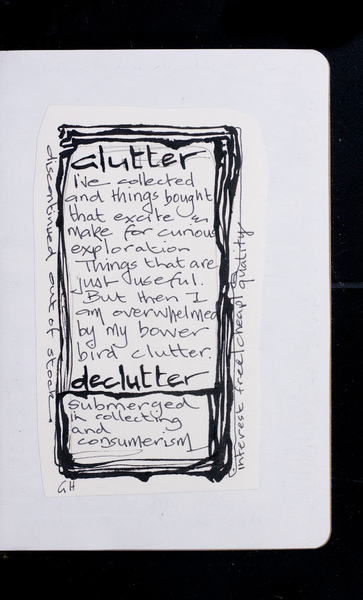 clutter
I've collected
and things bought
that excite &
make for curious
exploration
Things that are
just useful.
But then I
am overwhelmed
by my bower
bird clutter.
declutter
submerged
in collecting
and
consumerism
discontinued out of stock
interest free/cheap/quality
GH